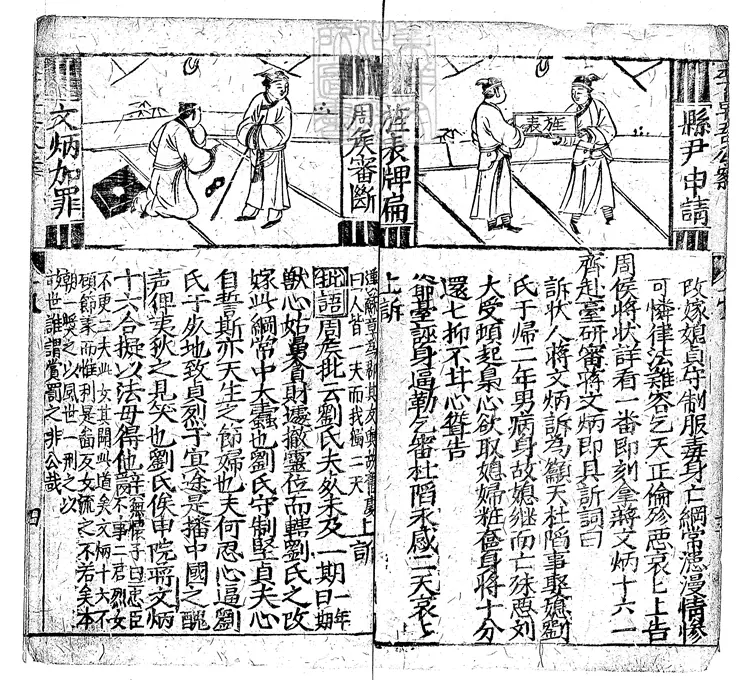 縣尹申請
旌表
旌表牌扁
改嫁媳貞守制服毒身亡綱常漫情慘
可憐律法難容乞天正倫殄惡哀乞上告
周侯將狀詳看一番即刻拿蔣文炳十六一
齊赴臺研審蔣文炳即具訴詞曰
訴狀人蔣文炳訴為籲天杜陷事娶媳劉
氏于歸二年男病身故媳継而亡殊惡刘
大受頓起梟心欲取媳婦粧奩身將十分
還七抑不甘心聳告
爺臺誣身逼勒乞審杜陷永感二天哀乞
上訴
周矦審斷
文炳加罪
曰人皆一天而我獨二天
上訴
批語周矦批云劉氏夫故未及一期
一年曰期
獸心姑舅貪財撤靈位而轄劉氏之改
嫁此綱常中大蠹也劉氏守制堅貞夫心
自誓斯亦天生之節婦也夫何忍心逼劉
氏于死地致貞烈于冥途是播中國之醜
声俾夷狄之見笑也劉氏俟申院蔣文炳
十六合擬以法毋得他辞
懷子曰忠臣
不事二君烈女
不更二夫此女其開此道矣文炳十六不
顧節義而惟利是啚反女流之不若矣本
朝一奬之以風世一刑之以
世誰謂賞罰之非公哉